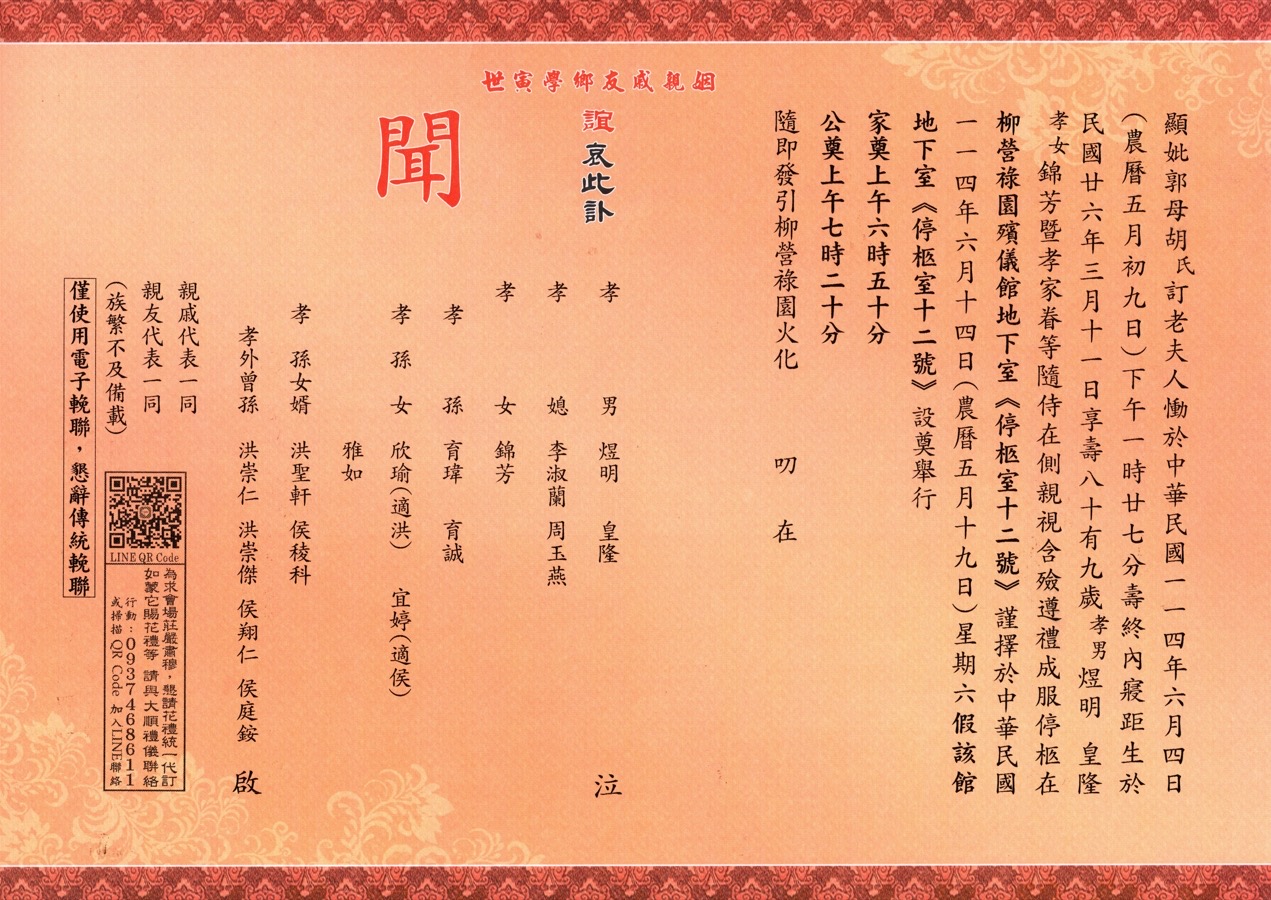 顯妣郭母胡氏訂老夫人慟於中華民國一一四年六月四日
（農曆五月初九日）下午一時廿七分壽終內寢距生於
民國廿六年三月十一日享壽八十有九歲孝男煜明 皇隆
孝女錦芳暨孝家眷等隨侍在側親視含殮遵禮成服停柩在
柳營祿園殯儀館地下室《停柩室十二號》謹擇於中華民國
一一四年六月十四日（農曆五月十九日）星期六假該館
地下室《停柩室十二號》設奠舉行
家奠上午六時五十分
公奠上午七時二十分
隨即發引柳營祿園火化 叨在
姻親戚友鄉學寅世
誼哀此訃
聞
孝男 煜明 皇隆 泣
孝媳 李淑蘭 周玉燕
孝女 錦芳
孝孫 育瑋 育誠
孝孫女 欣瑜（適洪） 宜婷（適侯）
雅如
孝孫女婿 洪聖軒 侯稜科
孝外曾孫 洪崇仁 洪崇傑 侯翔仁 侯庭銨 啟
親戚代表一同
親友代表一同
（族繁不及備載）
僅使用電子輓聯，懇辭傳統輓聯
LINE QR Code
為求會場莊嚴肅穆，懇請花禮統一代訂
如蒙它賜花禮等 請與大順禮儀聯絡
行動：0937468611
或掃描 QR Code 加入LINE聯絡